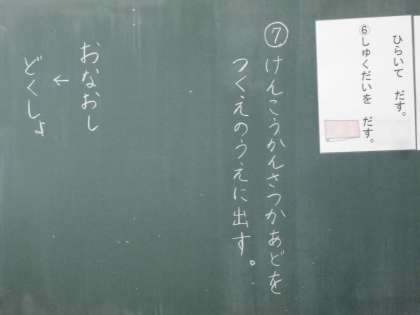 ひらいて　だす。
⑥しゅくだいを　だす。
⑦けんこうかんさつかあどを
つくえのうえに出す。
おなおし
↓
どくしょ